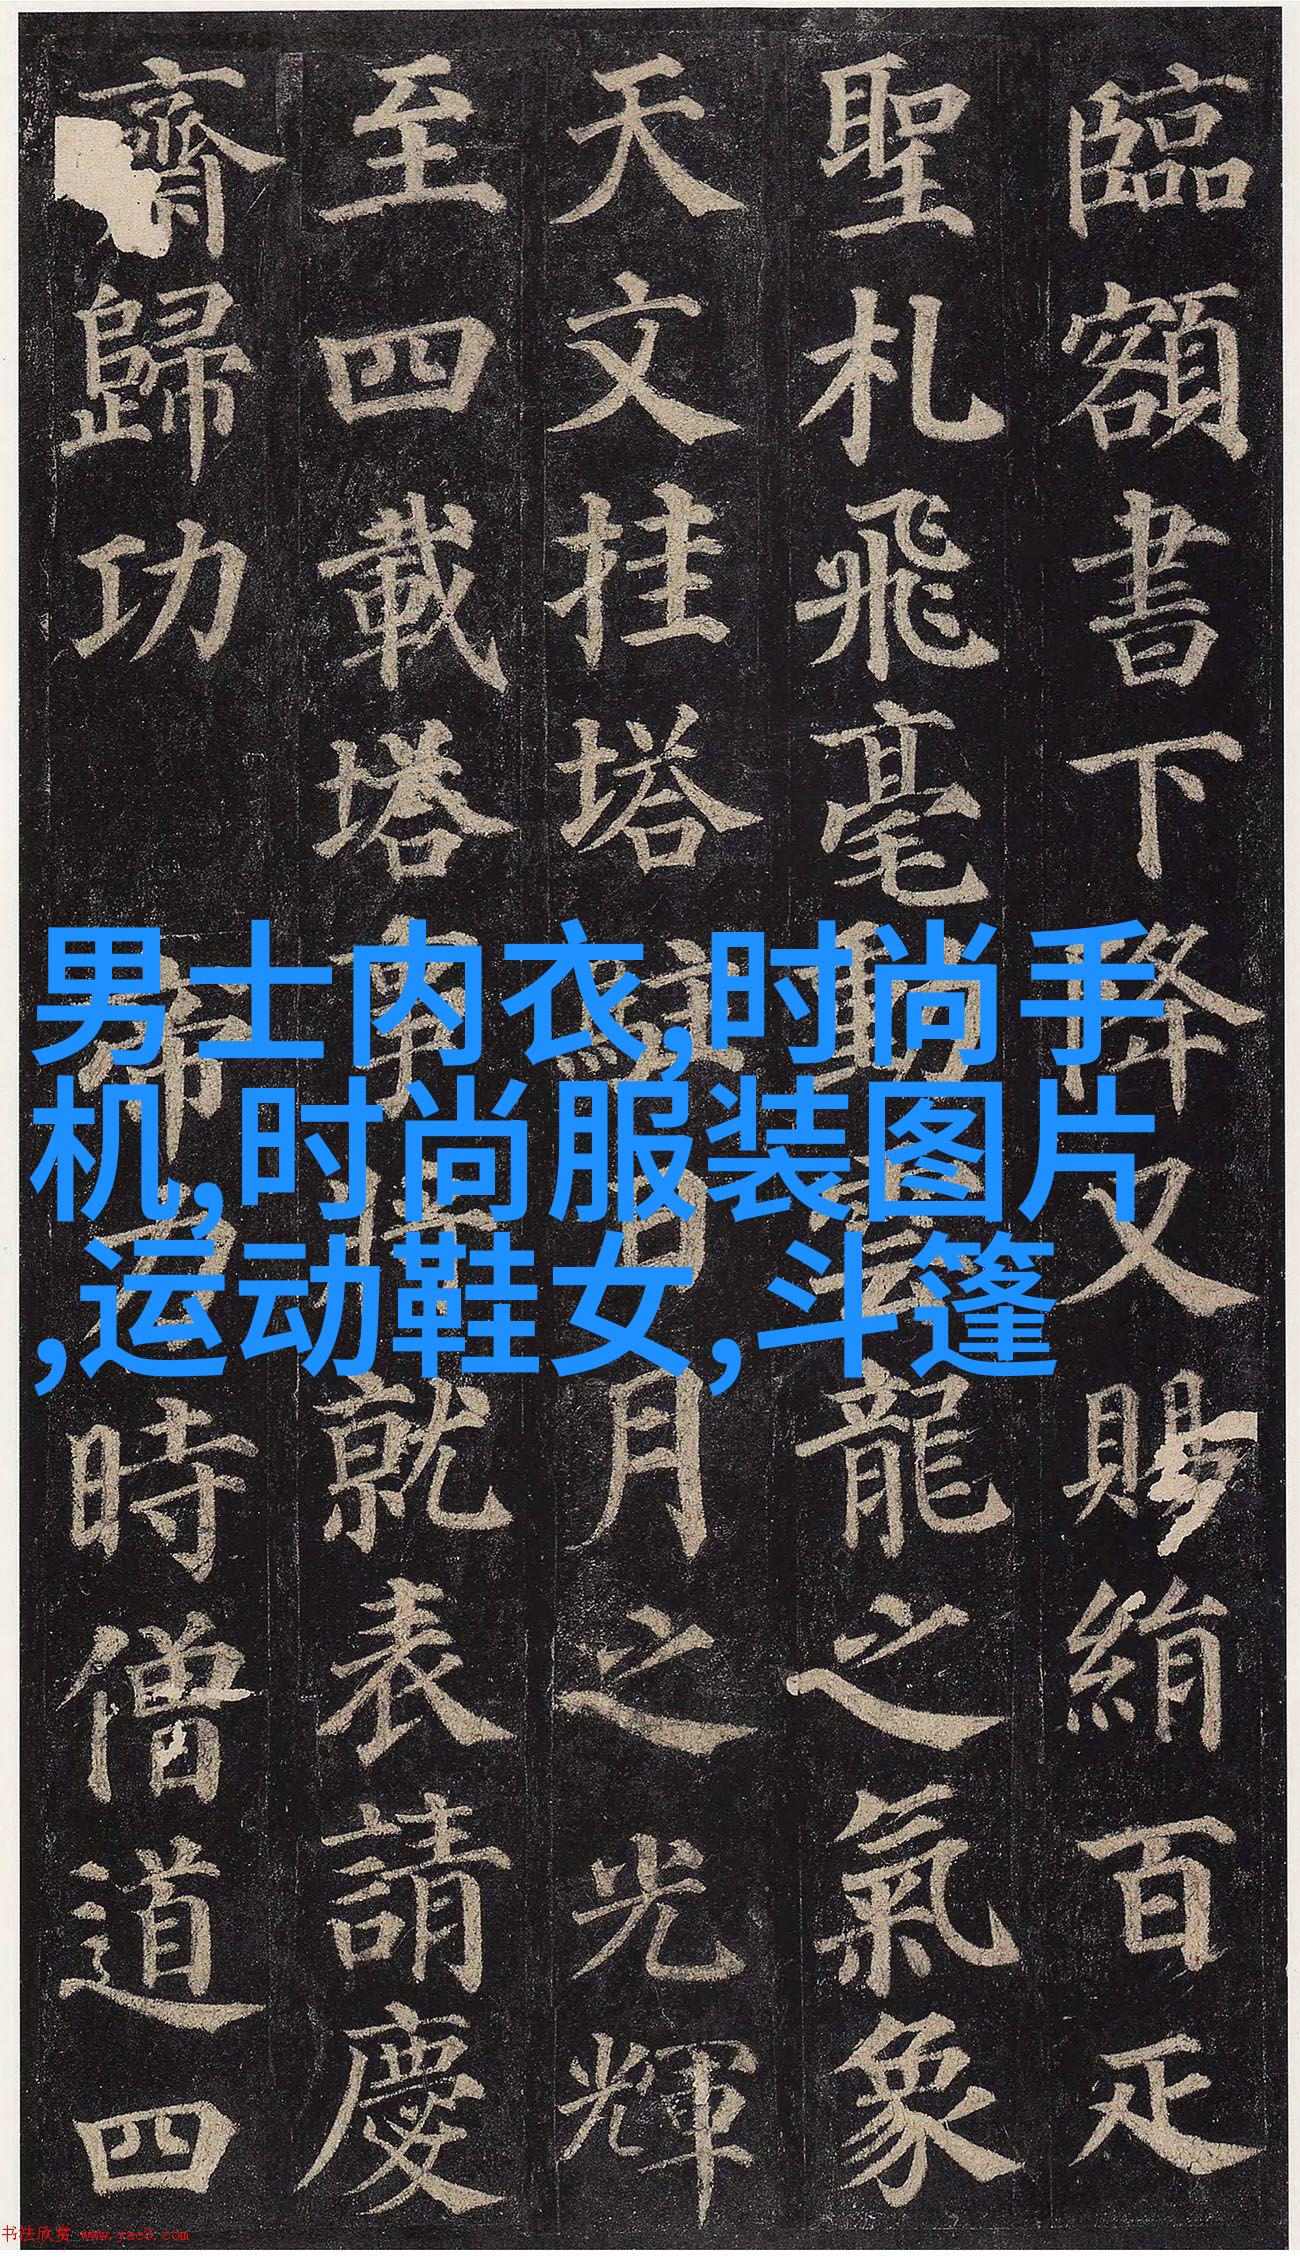 臨額書下降又賜絹百疋
聖札飛毫動雲龍之氣象
天文挂塔駐日月之光輝
至四載塔事將就表請慶
齋歸功 帝力時僧道四
男士内衣,时尚手
机,时尚服装图片
,运动鞋女,斗篷
书法欣赏 www.yac8.com